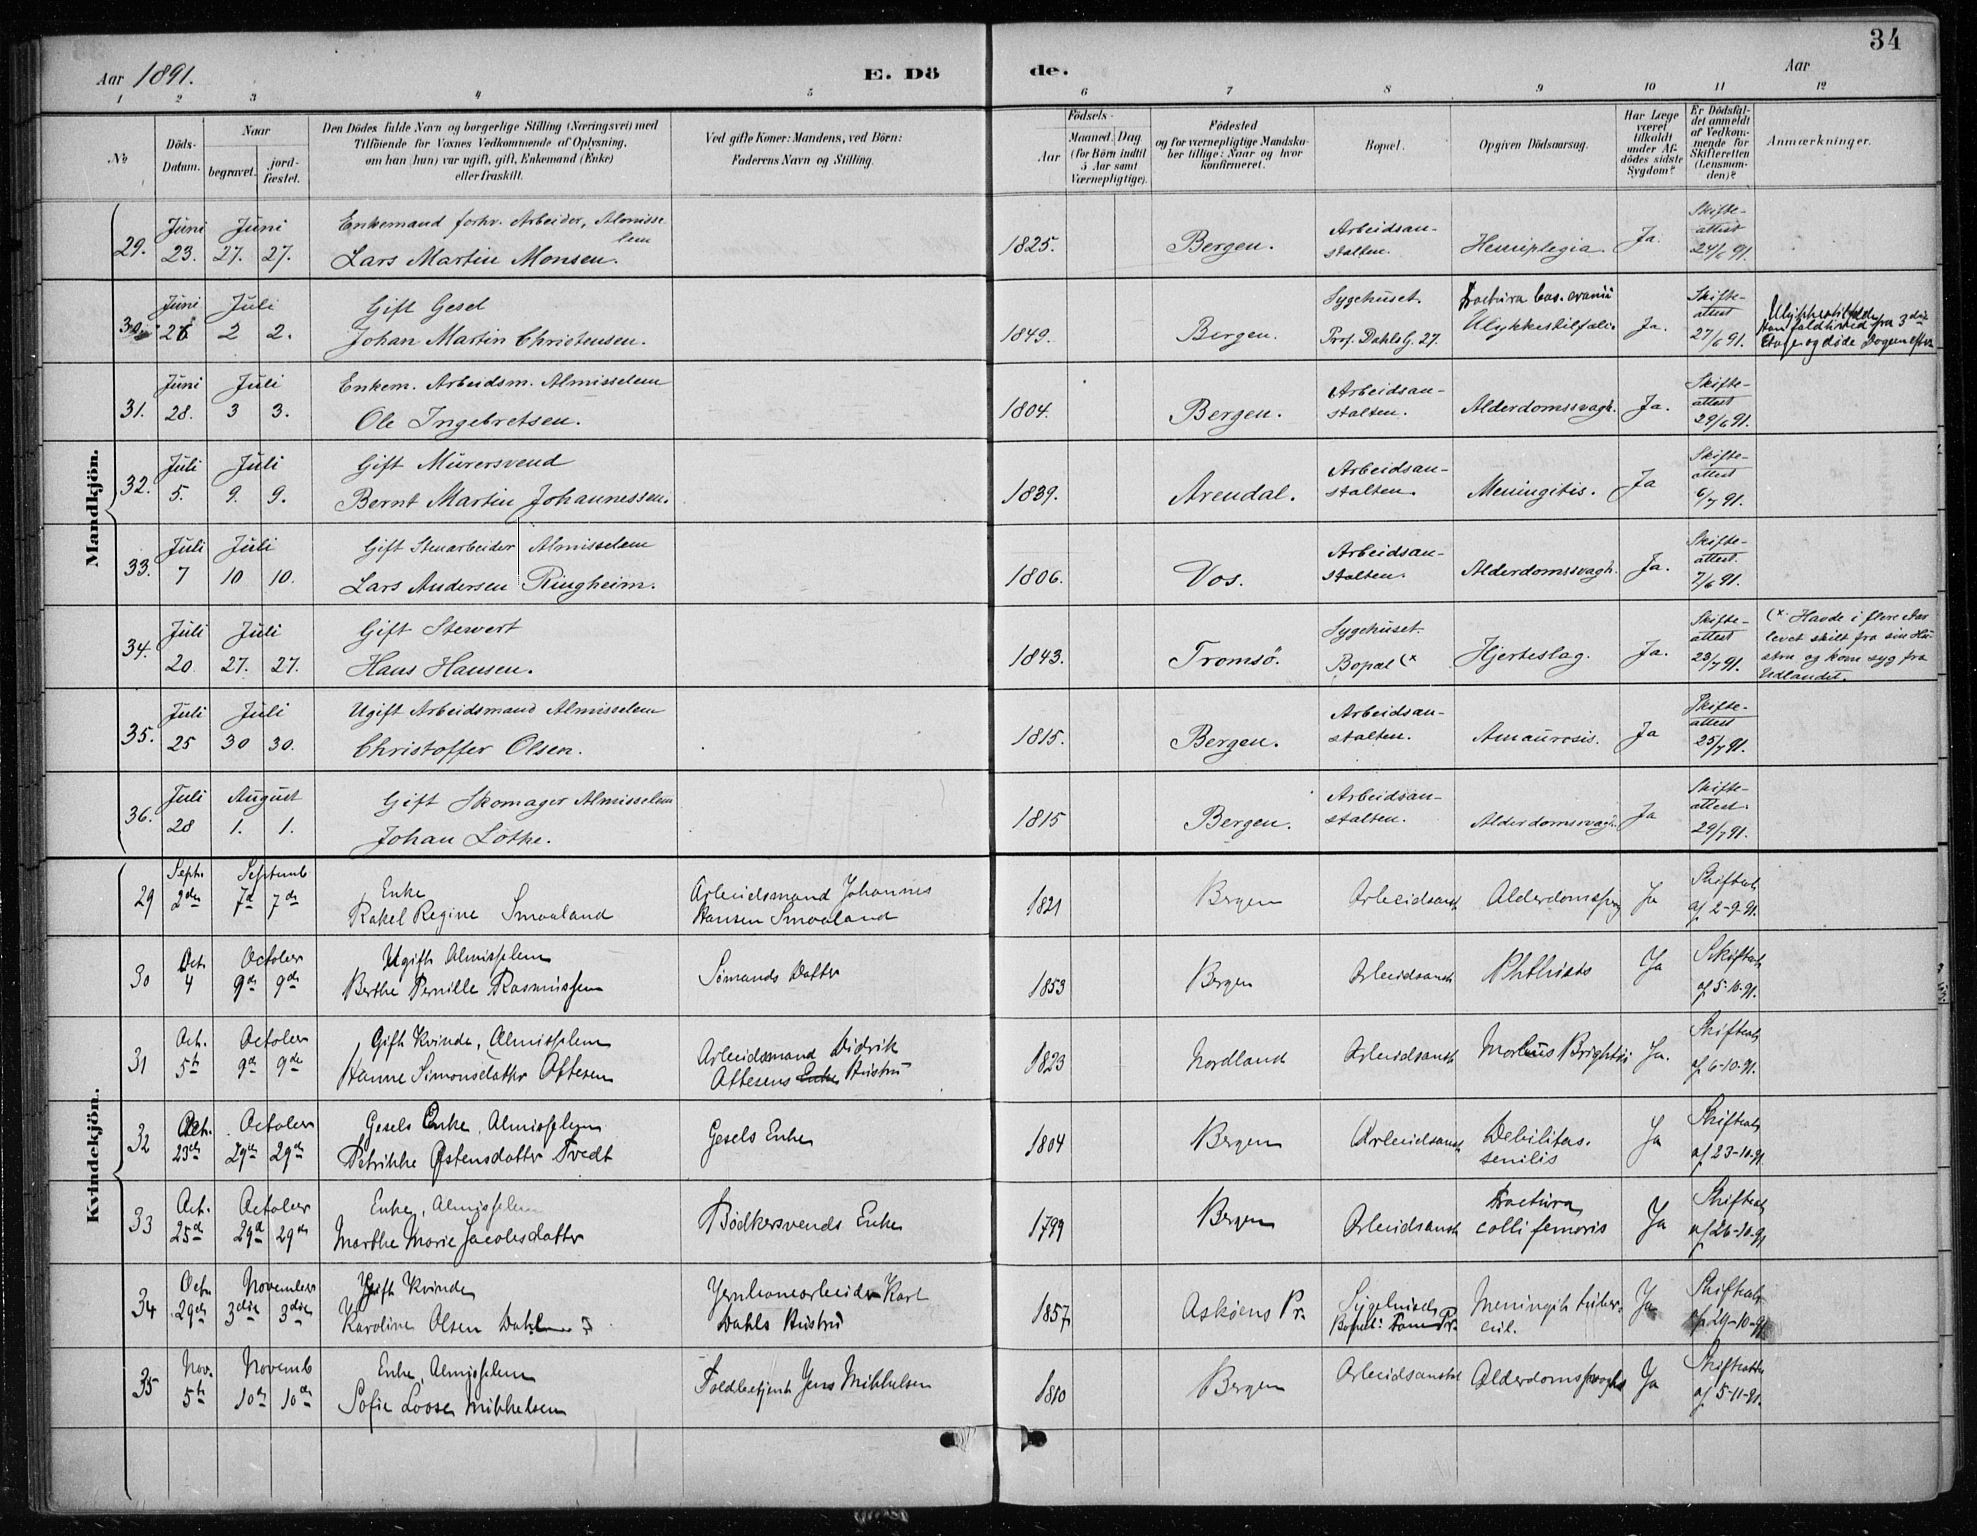 34
Aar 1891. E. Dö de. Aar
1 2 3 4 5 6 7 8 9 10 11 12
No
Döds-Datum.
Naar
begravet. jord-fæstet.
Den Dödes fulde Navn og borgerlige Stilling (Næringsvei) med
Tilföiende for Voxnes Vedkommende af Oplysning,
om han (hun) var ugift, gift, Enkemand (Enke)
eller fraskilt.
Ved gifte Koner: Mandens, ved Börn:
Faderens Navn og Stilling.
Födsels-
Aar Maaned. Dag
(for Börn indtil
5 Aar samt
Værnepligtige).
Födested
og for værnepligtige Mandska-
ber tillige: Naar og hvor
konfirmeret.
Bopæl.
Opgiven Dödsaarsag.
Har Læge
været
tilkaldt
under Af-
dödes sidste
Sygdom?
Er Dödsfal-
det anmeldt
af Vedkom-
mende for
Skifteretten
(Lensman-
den)?
Anmærkninger.
Mandkjön.
Juni Juni Enkemand forhv. Arbeider, Almisse-lem Arbeidsan- Skifte-attest
29. 23. 27. 27. Lars Martin Monsen. 1825. Bergen. stalten. Hemiplegia. Ja. 24/6 91.
Juni Juli Gift Gesel Sygehuset. Fractura bas. cranii Skifte-attest
30 26 2 2. Johan Martin Christensen. 1849. Bergen. Prof. Dahls G. 27. Ulykkestilfælde Ja. 27/6 91.
Han faldt ned fra 3die
Etage og døde Dagen efter
Juni Juli Enkem. Arbeidsm. Almisselem Arbeidsan- Skifte-attest
31. 28. 3 3. Ole Ingebretsen. 1804. Bergen. stalten. Alderdomssvagh. Ja. 29/6 91.
Juli Juli Gift Murersvend Arbeidsan- Skifte-attest
32. 5. 9. 9. Bernt Martin Johannessen. 1839. Arendal. stalten. Meningitis. Ja 6/7 91.
Juli Juli Gift Stenarbeider Almisselem Arbeidsan- Skifte-attest.
33. 7 10 10. Lars Andersen Ringheim. 1806. Vos. stalten. Alderdomssvagh. Ja. 7/6 91.
Juli Juli Gift Stewert Sygehuset. Skifte-attest
34. 20. 27. 27. Hans Hansen. 1843. Tromsö. Bopæl (x Hjerteslag. Ja. 23/7 91.
(x Havde i flere Aar
levet skilt fra sin Hu-
stru og kom syg fra
Udlandet.
Juli Juli Ugift Arbeidsmand Almisselem Arbeidsan- Skifte-attest
35. 25 30 30. Christoffer Olsen. 1815. Bergen. stalten. Amaurosis. Ja 25/7 91.
Juli August Gift Skomager Almisselem Arbeidsan- Skifte-attest.
36. 28 1. 1. Johan Lothe. 1815 Bergen. stalten. Alderdomssvagh. Ja 29/7 91.
Kvindekjön.
Sept. Septemb Enke Arbeidsmand Johannes Skifteatt
29 2den 7d 7de Rakel Regine Smaaland Hansen Smaaland 1821 Bergen Arbeidsanst Alderdomssvag Ja af 2-9-91.
Oct. October Ugift Almisselem Skifteatt
30 4 9de 9de Berthe Pernille Rasmussen Sömands Datter 1853 Bergen Arbeidsanst Phthisis Ja af 5-10-91.
Oct. October Gift Kvinde, Almisselem Arbeidsmand Didrik Skifteatt
31 5te 9de 9de Hanne Simonsdatter Oftesen Oftesens Enke Hustru 1823 Nordland Arbeidsanst Morbus Brightii Ja. af 6-10-91.
Oct. October Gesels Enke, Almisselem Skifteatt
32 23de 29de 29de Petrikke Østensdatter Tvedt Gesels Enke 1804 Bergen Arbeidsanst Debilitas senilis Ja af 23-10-91
Oct. October Enke, Almisselem Skifteatt
33 25d 29d 29de Marthe Marie Jacobsdatter Bödkersvends Enke 1799 Bergen Arbeidsanst Fractura colli femoris Ja af 26-10-91
Oct. November Gift Kvinde Jernbanearbeider Karl Skifteatt
34 29de 3die 3die Karoline Olsen Dahl Dahls Hustru 1857 Askøens Pr. Sygehuset Meningit. tuber-cul. Ja af 29-10-91
Nov. Novemb Enke, Almisselem Skifteatt
35 5te 10de 10de Sofie Loose Mikkelsen Toldbetjent Jens Mikkelsen 1810 Bergen Arbeidsanst Alderdomssvagh Ja af 5-11-91.